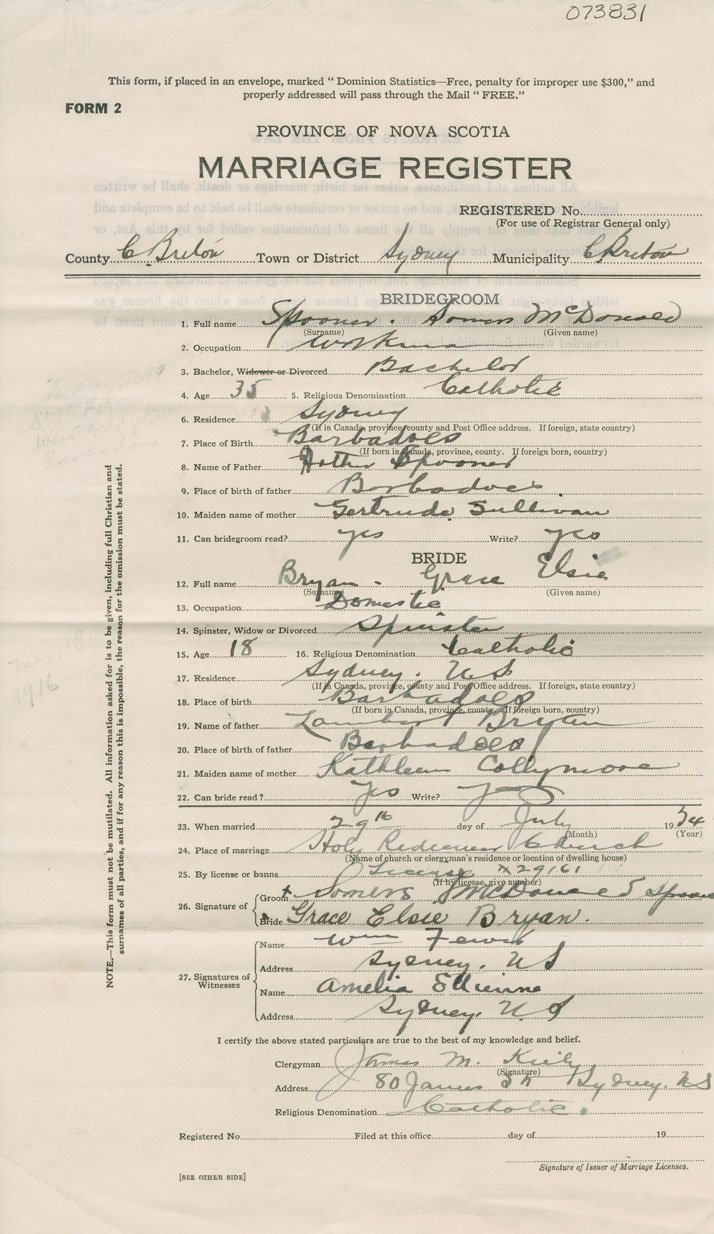 073831
This form, if placed in an envelope, marked “ Dominion Statistics—Free, penalty for improper use $300,” and
properly addressed will pass through the Mail “ FREE.”
FORM 2
PROVINCE OF NOVA SCOTIA
MARRIAGE REGISTER
REGISTERED No.
(For use of Registrar General only)
County C. Breton Town or District Sydney Municipality C Breton
BRIDEGROOM
1. Full name Spooner. Somers McDonald
(Surname) (Given name)
2. Occupation Workman
3. Bachelor, Widower or Divorced Bachelor
4. Age 35 5. Religious Denomination Catholic
6. Residence Sydney
(If in Canada, province, county and Post Office address. If foreign, state country)
7. Place of Birth Barbadoes
(If born in Canada, province, county. If foreign born, country)
8. Name of Father Spooner
9. Place of birth of father Barbadoes.
10. Maiden name of mother Gertrude Sullivan
11. Can bridegroom read? yes Write? yes
BRIDE
12. Full name Bryan - Grace Elsie
(Surname) (Given name)
13. Occupation Domestic
14. Spinster, Widow or Divorced Spinster
15. Age 18 16. Religious Denomination Catholic
17. Residence Sydney. NS
(If in Canada, province, county and Post Office address. If foreign, state country)
18. Place of birth Barbadoes
(If born in Canada, province, county. If foreign born, country)
19. Name of father Lambert Bryan
20. Place of birth of father Barbadoes
21. Maiden name of mother Kathleen Collymore
22. Can bride read? yes Write? yes
23. When married 29th day of July 1934
(Month) (Year)
24. Place of marriage Holy Redeemer Church
(Name of church or clergyman's residence or location of dwelling house)
25. By license or banns License 29161
(If by license, give number)
26. Signature of
Groom Somers McDonald Spooner
Bride Grace Elsie Bryan.
27. Signatures of
Witnesses
Name Wm
Address Sydney. NS
Name Amelia Etienne
Address Sydney. NS
I certify the above stated particulars are true to the best of my knowledge and belief.
Clergyman James M. Kiely
(Signature)
Address 80 James St Sydney. NS
Religious Denomination Catholic.
Registered No. Filed at this office day of 19
Signature of Issuer of Marriage Licenses.
[SEE OTHER SIDE]
NOTE.—This form must not be mutilated. All information asked for is to be given, including full Christian and
surnames of all parties, and if for any reason this is impossible, the reason for the omission must be stated.
1916